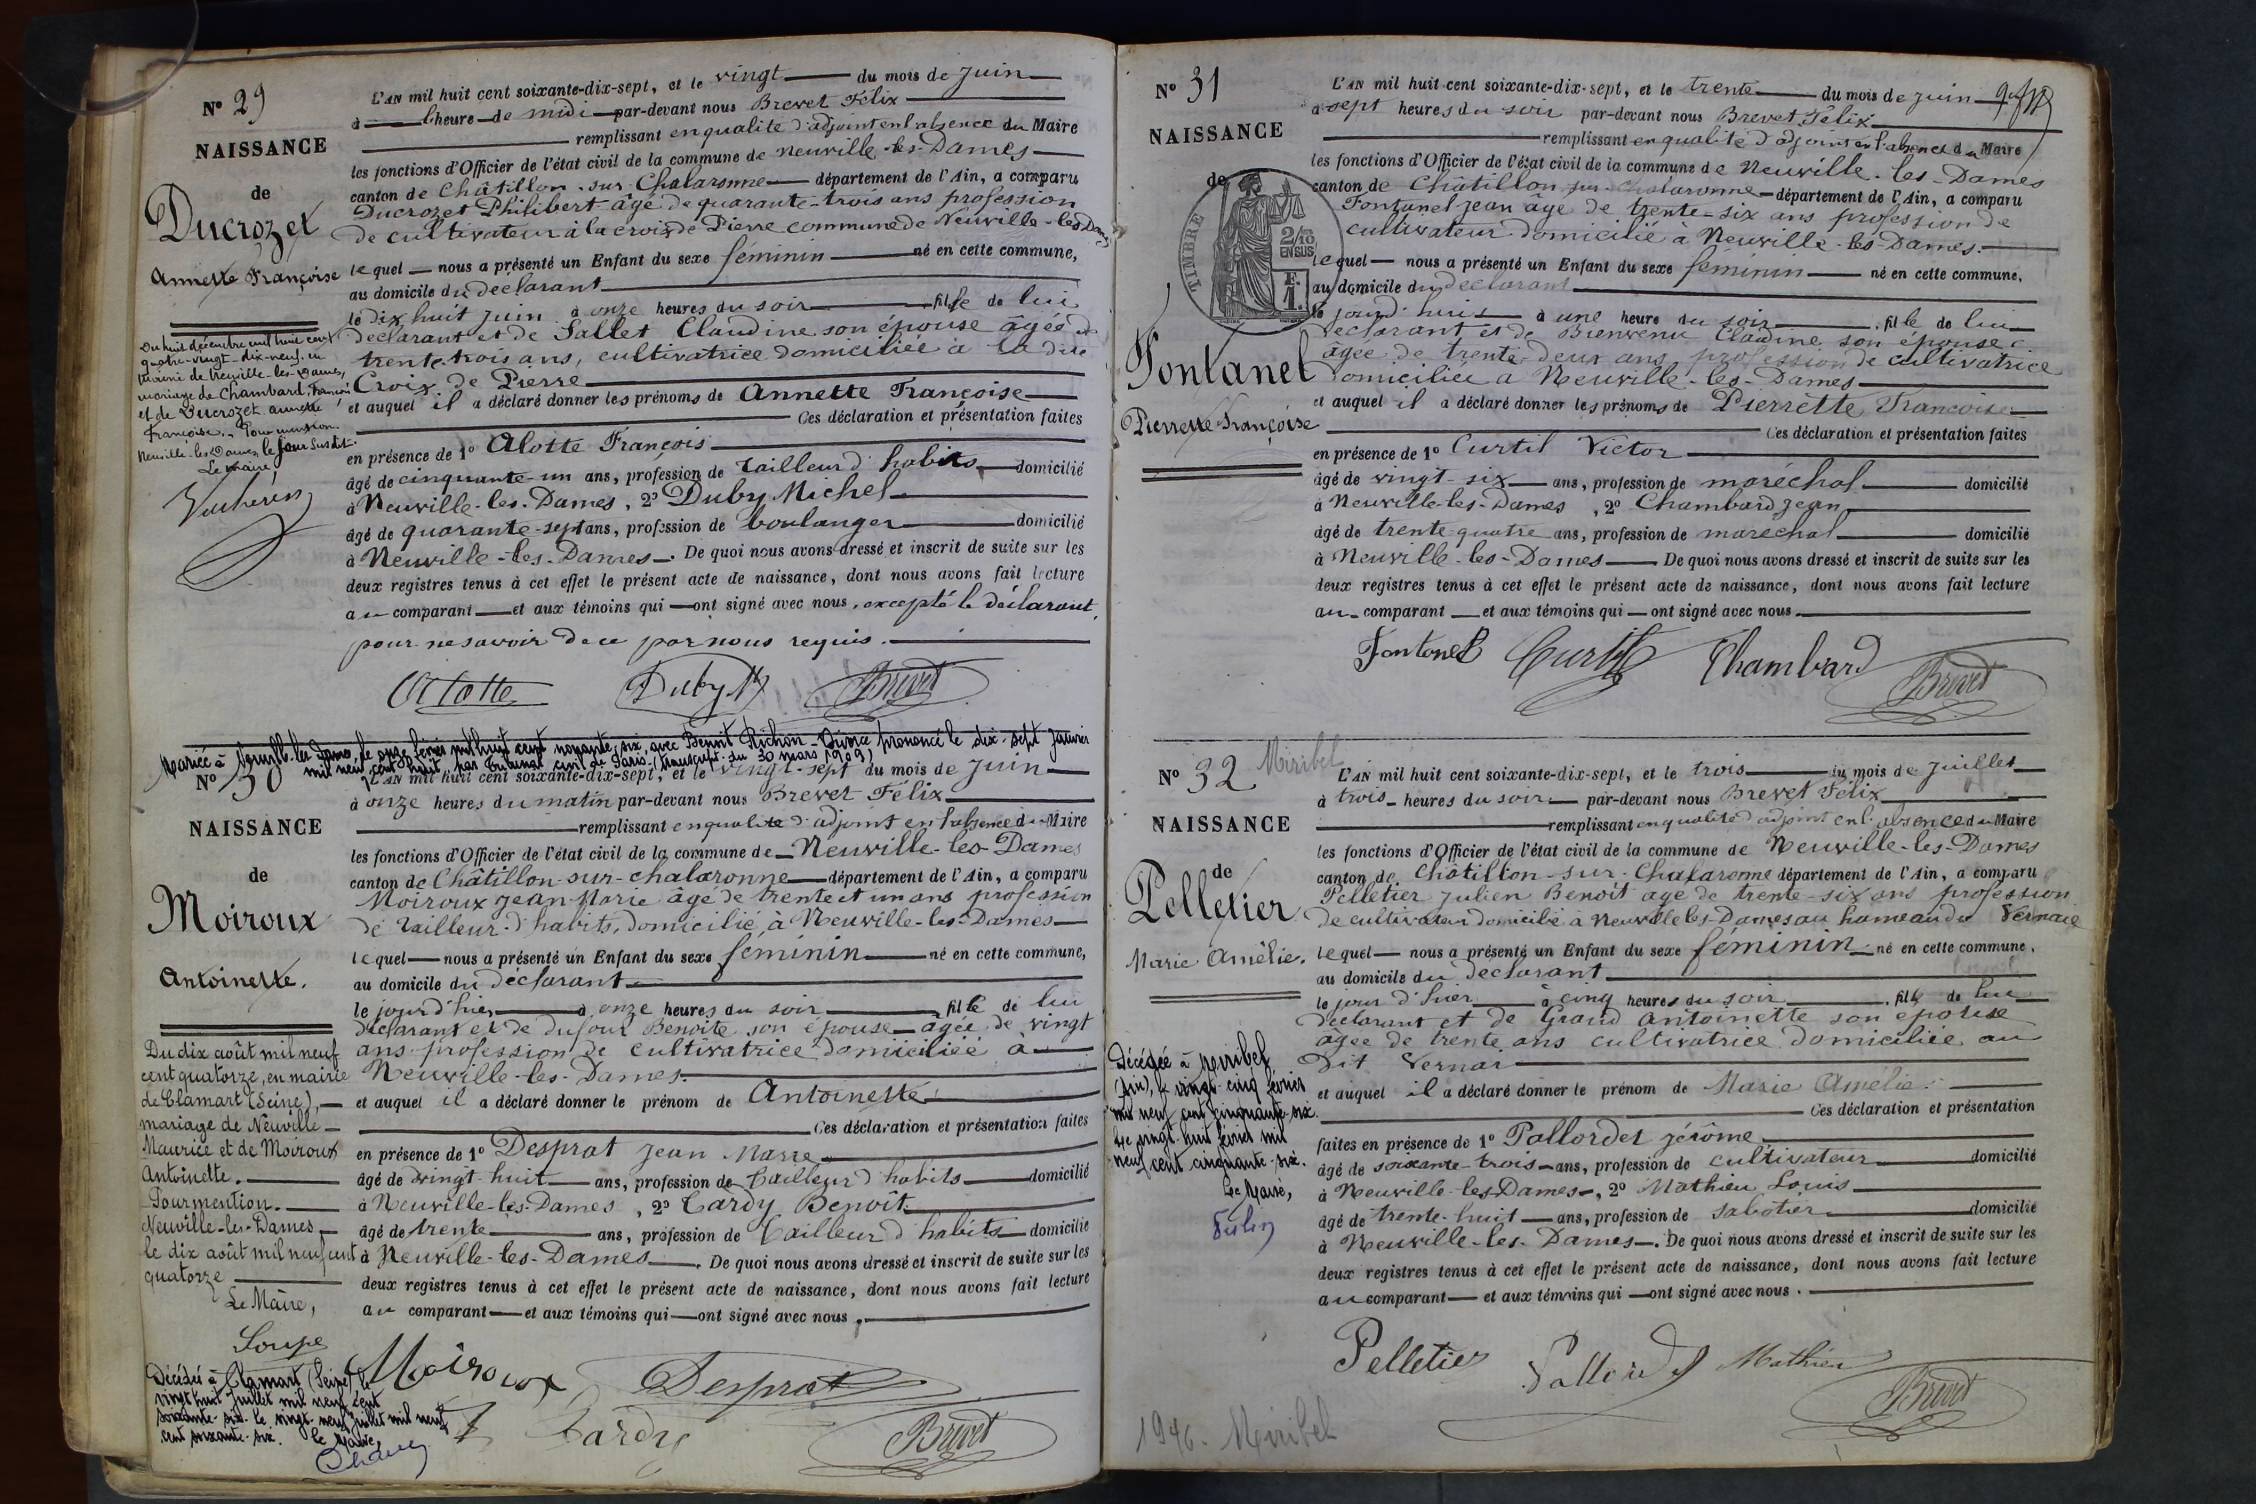 N° 29
NAISSANCE
de
Ducrozet
Annette Françoise
Du huit décembre mil huit cent
quatre-vingt-dix-neuf, en
mairie de Neuville-les-Dames,
mariage de Chambard, François
et de Ducrozet Annette
Françoise. Pour mention.
Neuville-les-Dames, le jour susdit.
Le Maire
L'AN mil huit cent soixante-dix-sept, et le vingt du mois de Juin
à l'heure de midi par-devant nous Brevet Félix
remplissant en qualité d'adjoint en l'absence du Maire
les fonctions d'Officier de l'état civil de la commune de Neuville-les-Dames
canton de Châtillon-sur-Chalaronne département de l'Ain, a comparu
Ducrozet Philibert âgé de quarante-trois ans profession
de cultivateur à la croix de Pierre commune de Neuville-les-Dames
lequel nous a présenté un Enfant du sexe féminin né en cette commune,
au domicile du déclarant
le dix huit juin à onze heures du soir fille de lui
déclarant et de Sallet Claudine son épouse âgée de
trente-trois ans, cultivatrice domiciliée à la dite
Croix de Pierre
et auquel il a déclaré donner les prénoms de Annette Françoise
Ces déclaration et présentation faites
en présence de 1° Alotte François
âgé de cinquante-un ans, profession de tailleur d'habits domicilié
à Neuville-les-Dames, 2° Duby Michel
âgé de quarante-sept ans, profession de boulanger domicilié
à Neuville-les-Dames. De quoi nous avons dressé et inscrit de suite sur les
deux registres tenus à cet effet le présent acte de naissance, dont nous avons fait lecture
au comparant et aux témoins qui ont signé avec nous, excepté le déclarant
pour ne savoir de ce par nous requis.
Alotte Duby M Brevet
Mariée à Neuville-les-Dames, le onze février mil huit cent nonante-six, avec Benoit Richon - Divorce prononcé le dix-sept janvier
mil neuf cent huit, par Tribunal civil de Paris. (Transcript. du 30 mars 1909)
N° 30
NAISSANCE
de
Moiroux
Antoinette.
Du dix août mil neuf
cent quatorze, en mairie
de Clamart (Seine),
mariage de Neuville
Maurice et de Moiroux
Antoinette.
Pour mention.
Neuville-les-Dames
le dix août mil neuf cent
quatorze
Le Maire,
Soupe
Décédée à Clamart (Seine) le
vingt huit juillet mil neuf cent
soixante-six. Le vingt-neuf juillet mil neuf
cent soixante-six. Le Maire,
L'AN mil huit cent soixante-dix-sept, et le vingt-sept du mois de Juin
à onze heures du matin par-devant nous Brevet Félix
remplissant en qualité d'adjoint en l'absence du Maire
les fonctions d'Officier de l'état civil de la commune de Neuville-les-Dames
canton de Châtillon-sur-chalaronne département de l'Ain, a comparu
Moiroux Jean-Marie âgé de trente et un ans profession
de tailleur d'habits, domicilié à Neuville-les-Dames
lequel nous a présenté un Enfant du sexe féminin né en cette commune,
au domicile du déclarant
le jour d'hier, à onze heures du soir fille de lui
déclarant et de Dufour Benoite son épouse âgée de vingt
ans profession de cultivatrice domiciliée à
Neuville-les-Dames.
et auquel il a déclaré donner le prénom de Antoinette
Ces déclaration et présentation faites
en présence de 1° Desprat Jean Marie
âgé de vingt-huit ans, profession de tailleur d'habits domicilié
à Neuville-les-Dames, 2° Cardy Benoît
âgé de trente ans, profession de tailleur d'habits domicilié
à Neuville-les-Dames. De quoi nous avons dressé et inscrit de suite sur les
deux registres tenus à cet effet le présent acte de naissance, dont nous avons fait lecture
au comparant et aux témoins qui ont signé avec nous.
Moiroux Desprat
Cardy Brevet
N° 31
NAISSANCE
de
TIMBRE
2/10
EN SUS
F.
1.
Fontanel
Pierrette Françoise
L'AN mil huit cent soixante-dix-sept, et le trente du mois de Juin
à sept heures du soir par-devant nous Brevet Félix
remplissant en qualité d'adjoint en l'absence du Maire
les fonctions d'Officier de l'état civil de la commune de Neuville-les-Dames
canton de Châtillon-sur-chalaronne département de l'Ain, a comparu
Fontanel Jean âgé de trente-six ans profession de
cultivateur domicilié à Neuville-les-Dames.
lequel nous a présenté un Enfant du sexe féminin né en cette commune,
au domicile du déclarant
le jour d'huis à une heure du soir fille de lui
déclarant et de Bienvenu Claudine son épouse
âgée de trente-deux ans profession de cultivatrice
domiciliée à Neuville-les-Dames
et auquel il a déclaré donner les prénoms de Pierrette Françoise
Ces déclaration et présentation faites
en présence de 1° Curtil Victor
âgé de vingt-six ans, profession de maréchal domicilié
à Neuville-les-Dames, 2° Chambard Jean
âgé de trente-quatre ans, profession de maréchal domicilié
à Neuville-les-Dames De quoi nous avons dressé et inscrit de suite sur les
deux registres tenus à cet effet le présent acte de naissance, dont nous avons fait lecture
au comparant et aux témoins qui ont signé avec nous.
Fontanel Curtil Chambard Brevet
N° 32 Miribel
NAISSANCE
de
Pelletier
Marie Amélie.
Décédée à Miribel
(Ain), le vingt-cinq février
mil neuf cent cinquante-six.
Le vingt-huit février mil
neuf cent cinquante-six.
Le Maire,
L'AN mil huit cent soixante-dix-sept, et le trois du mois de Juillet
à trois heures du soir par-devant nous Brevet Félix
remplissant en qualité d'adjoint en l'absence du Maire
les fonctions d'Officier de l'état civil de la commune de Neuville-les-Dames
canton de Châtillon-sur-Chalaronne département de l'Ain, a comparu
Pelletier Julien Benoit âgé de trente-six ans profession
de cultivateur domicilié à Neuville les-Dames au hameau du Vernaie
lequel nous a présenté un Enfant du sexe féminin né en cette commune,
au domicile du déclarant
le jour d'hier à cinq heures du soir fille de lui
déclarant et de Grand Antoinette son épouse
âgée de trente ans cultivatrice domiciliée au
Dit Vernai
et auquel il a déclaré donner le prénom de Marie Amélie.
Ces déclaration et présentation
faites en présence de 1° Pallordet Jérôme
âgé de soixante-trois ans, profession de cultivateur domicilié
à Neuville-les-Dames, 2° Mathieu Louis
âgé de trente-huit ans, profession de sabotier domicilié
à Neuville-les-Dames. De quoi nous avons dressé et inscrit de suite sur les
deux registres tenus à cet effet le présent acte de naissance, dont nous avons fait lecture
au comparant et aux témoins qui ont signé avec nous.
Pelletier Pallordet Mathieu
Brevet
1946. Miribel